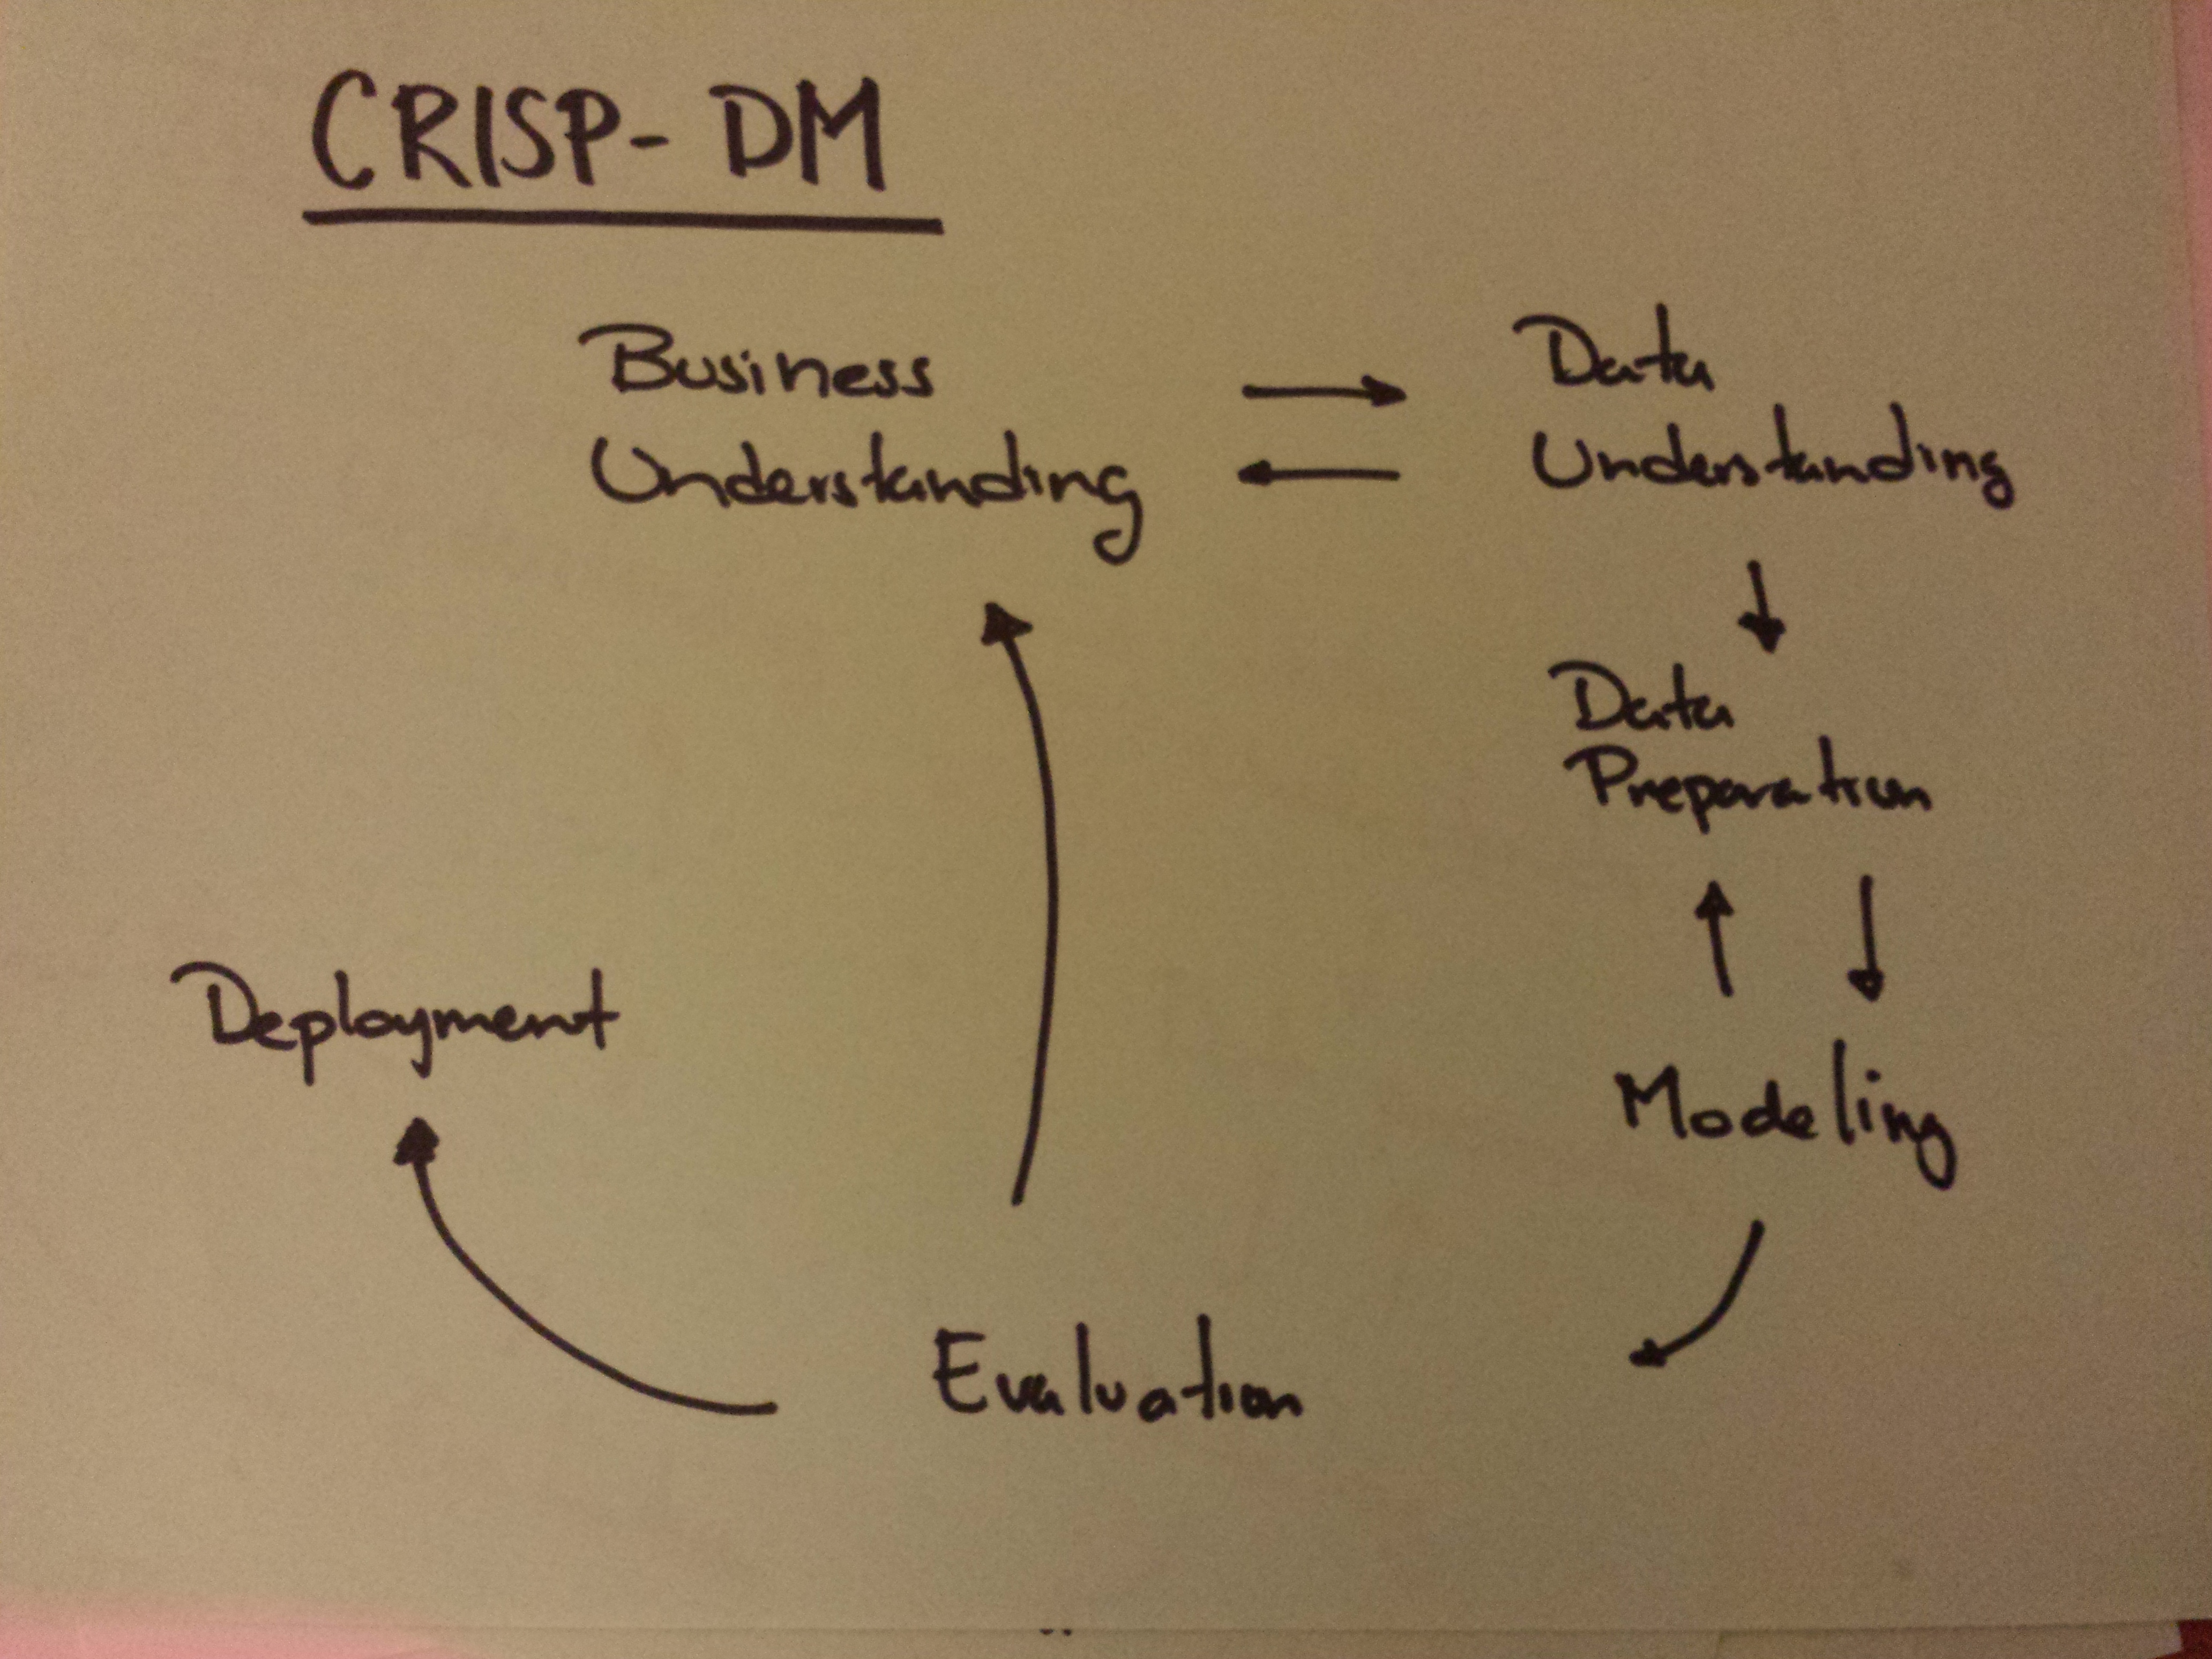 CRISP-DM
Business
Understanding
Data
Understanding
Data
Preparation
Modeling
Evaluation
Deployment